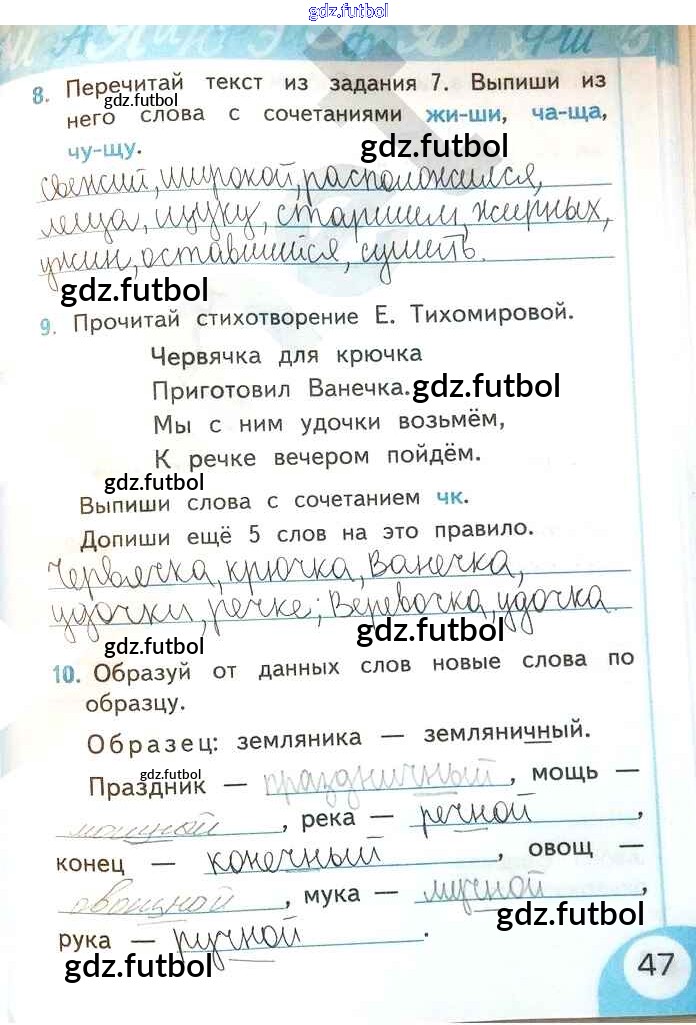 gdz.futbol
8. Перечитай текст из задания 7. Выпиши из
gdz.futbol
него слова с сочетаниями жи-ши, ча-ща,
чу-щу.
gdz.futbol
свежий, широкой, расположился,
леща, щуку, старшим, жирных,
ужин, оставшийся, сушить.
gdz.futbol
9. Прочитай стихотворение Е. Тихомировой.
Червячка для крючка
Приготовил Ванечка.
gdz.futbol
Мы с ним удочки возьмём,
К речке вечером пойдём.
gdz.futbol
Выпиши слова с сочетанием чк.
Допиши ещё 5 слов на это правило.
Червячка, крючка, Ванечка,
удочки, речке; Веревочка, удочка.
gdz.futbol
gdz.futbol
10. Образуй от данных слов новые слова по
образцу.
Образец: земляника — земляничный.
gdz.futbol
Праздник — праздничный, мощь —
мощной, река — речной,
конец — конечный, овощ —
овощной, мука — мучной,
gdz.futbol
рука — ручной.
gdz.futbol
47